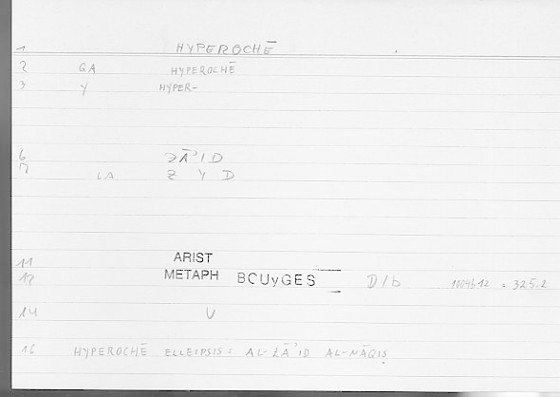 1 HYPEROCHĒ
2 GA HYPEROCHĒ
3 Y HYPER-
6 ZĀʾID
7 LA Z Y D
11 ARIST
12 METAPH BOUYGES D/b 1004b12 = 325.2
14 V
16 HYPEROCHĒ ELLEIPSIS = AL-ZĀʾID AL-NĀQIṢ